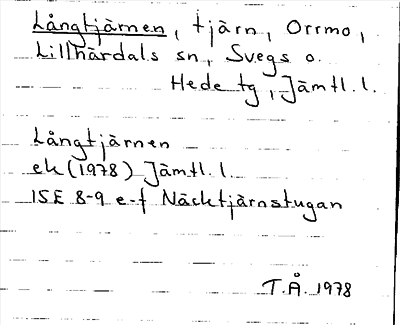 Långtjärnen, tjärn, Orrmo,
Lillhärdals sn, Svegs o.
Hede tg, Jämtl. l.
Långtjärnen
ek (1978) Jämtl. l.
15E 8-9 e-f Näcktjärnstugan
T.Å. 1978